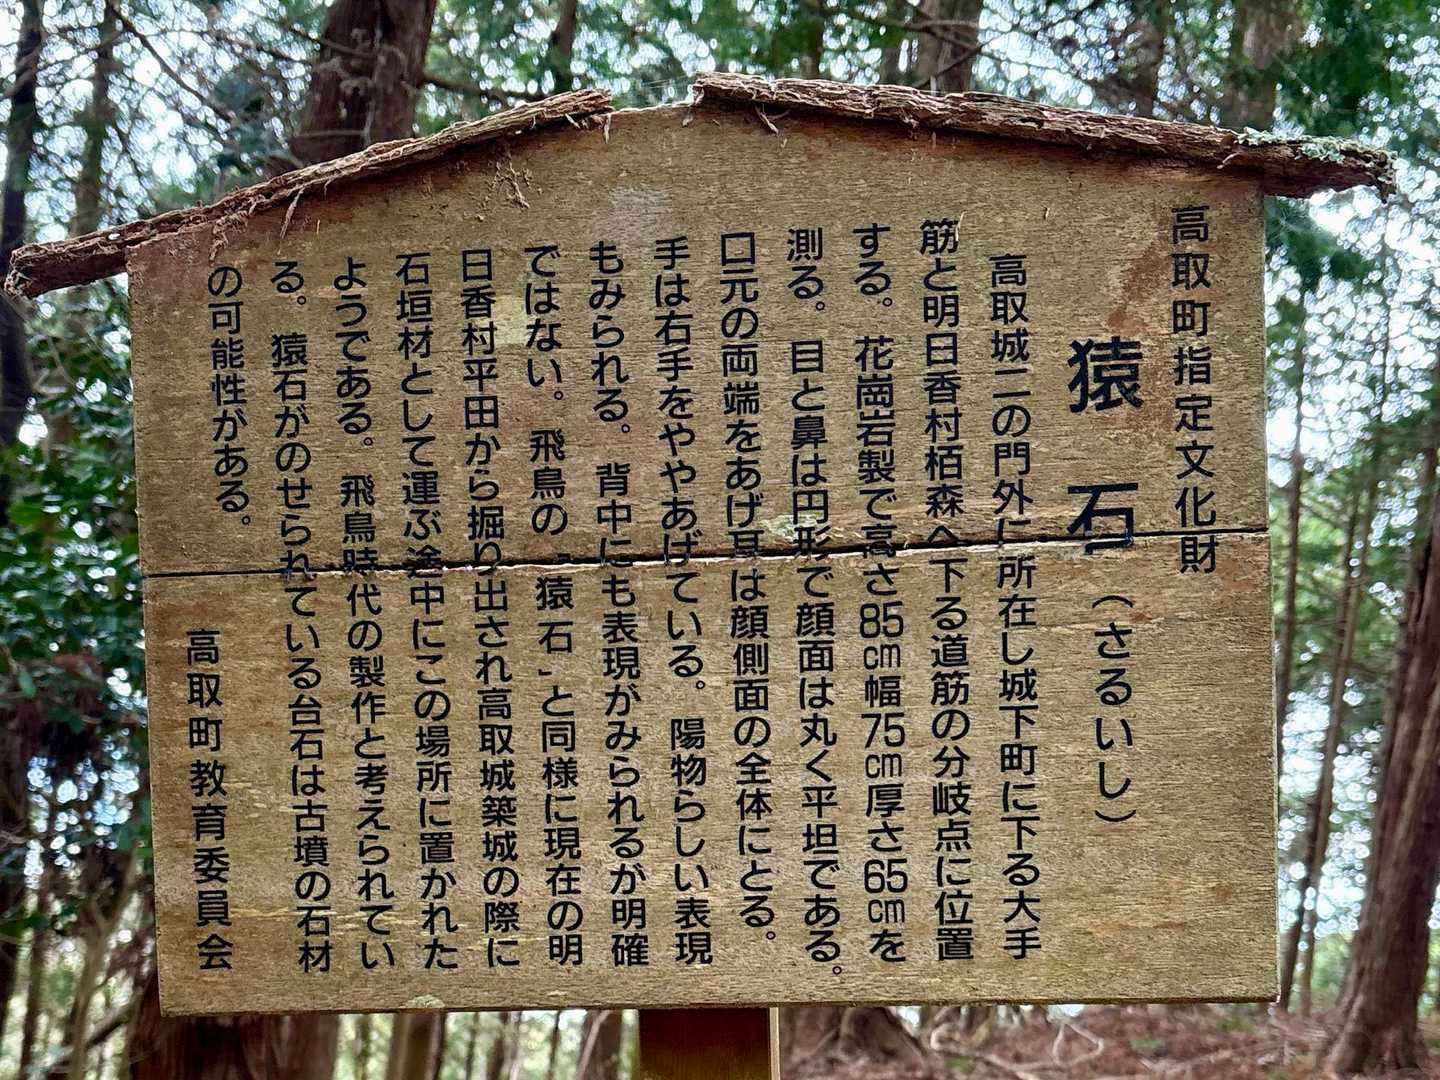 高取町指定文化財
猿石（さるいし）
高取城二の門外に所在し城下町に下る大手
筋と明日香村栢森へ下る道筋の分岐点に位置
する。花崗岩製で高さ85㎝幅75㎝厚さ65㎝を
測る。目と鼻は円形で顔面は丸く平坦である。
口元の両端をあげ耳は顔側面の全体にとる。
手は右手をややあげている。陽物らしい表現
もみられる。背中にも表現がみられるが明確
ではない。飛鳥の「猿石」と同様に現在の明
日香村平田から掘り出され高取城築城の際に
石垣材として運ぶ途中にこの場所に置かれた
ようである。飛鳥時代の製作と考えられてい
る。猿石がのせられている台石は古墳の石材
の可能性がある。
高取町教育委員会